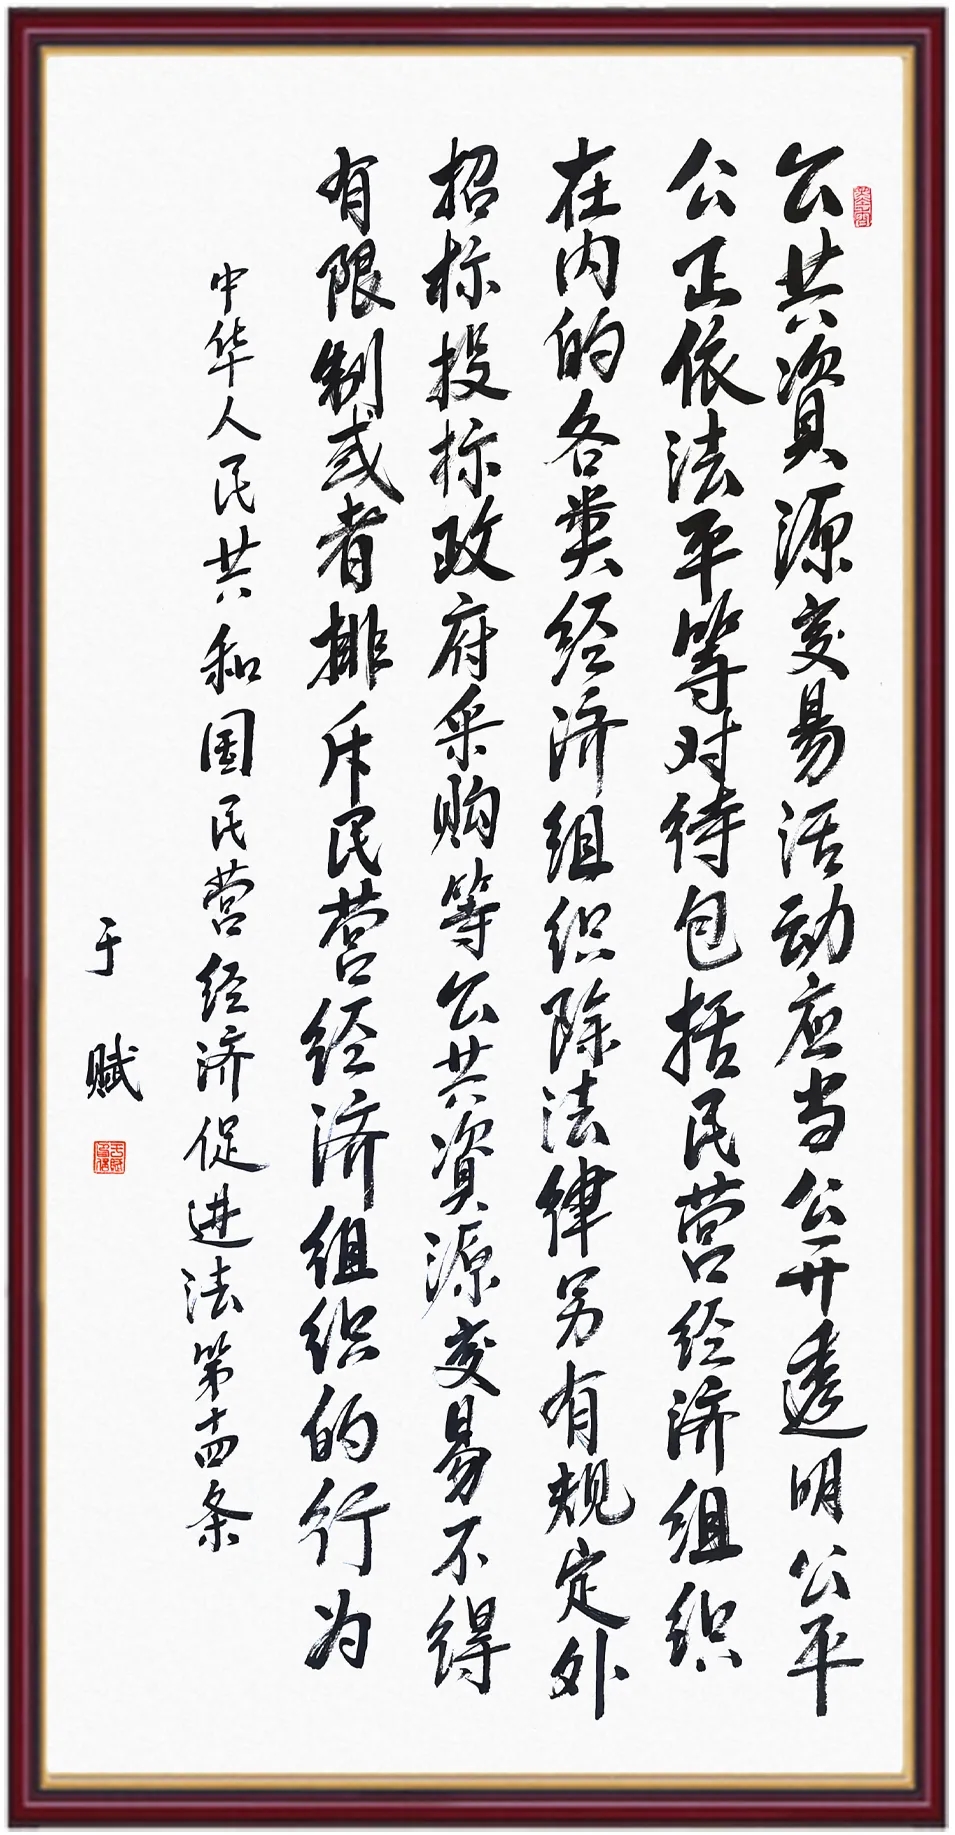 公共資源交易活动应当公开透明公平
公正依法平等对待包括民营经济组织
在内的各类经济组织除法律另有规定外
招标投标政府采购等公共資源交易不得
有限制或者排斥民营经济组织的行为
中华人民共和国民营经济促进法第十四条
于赋